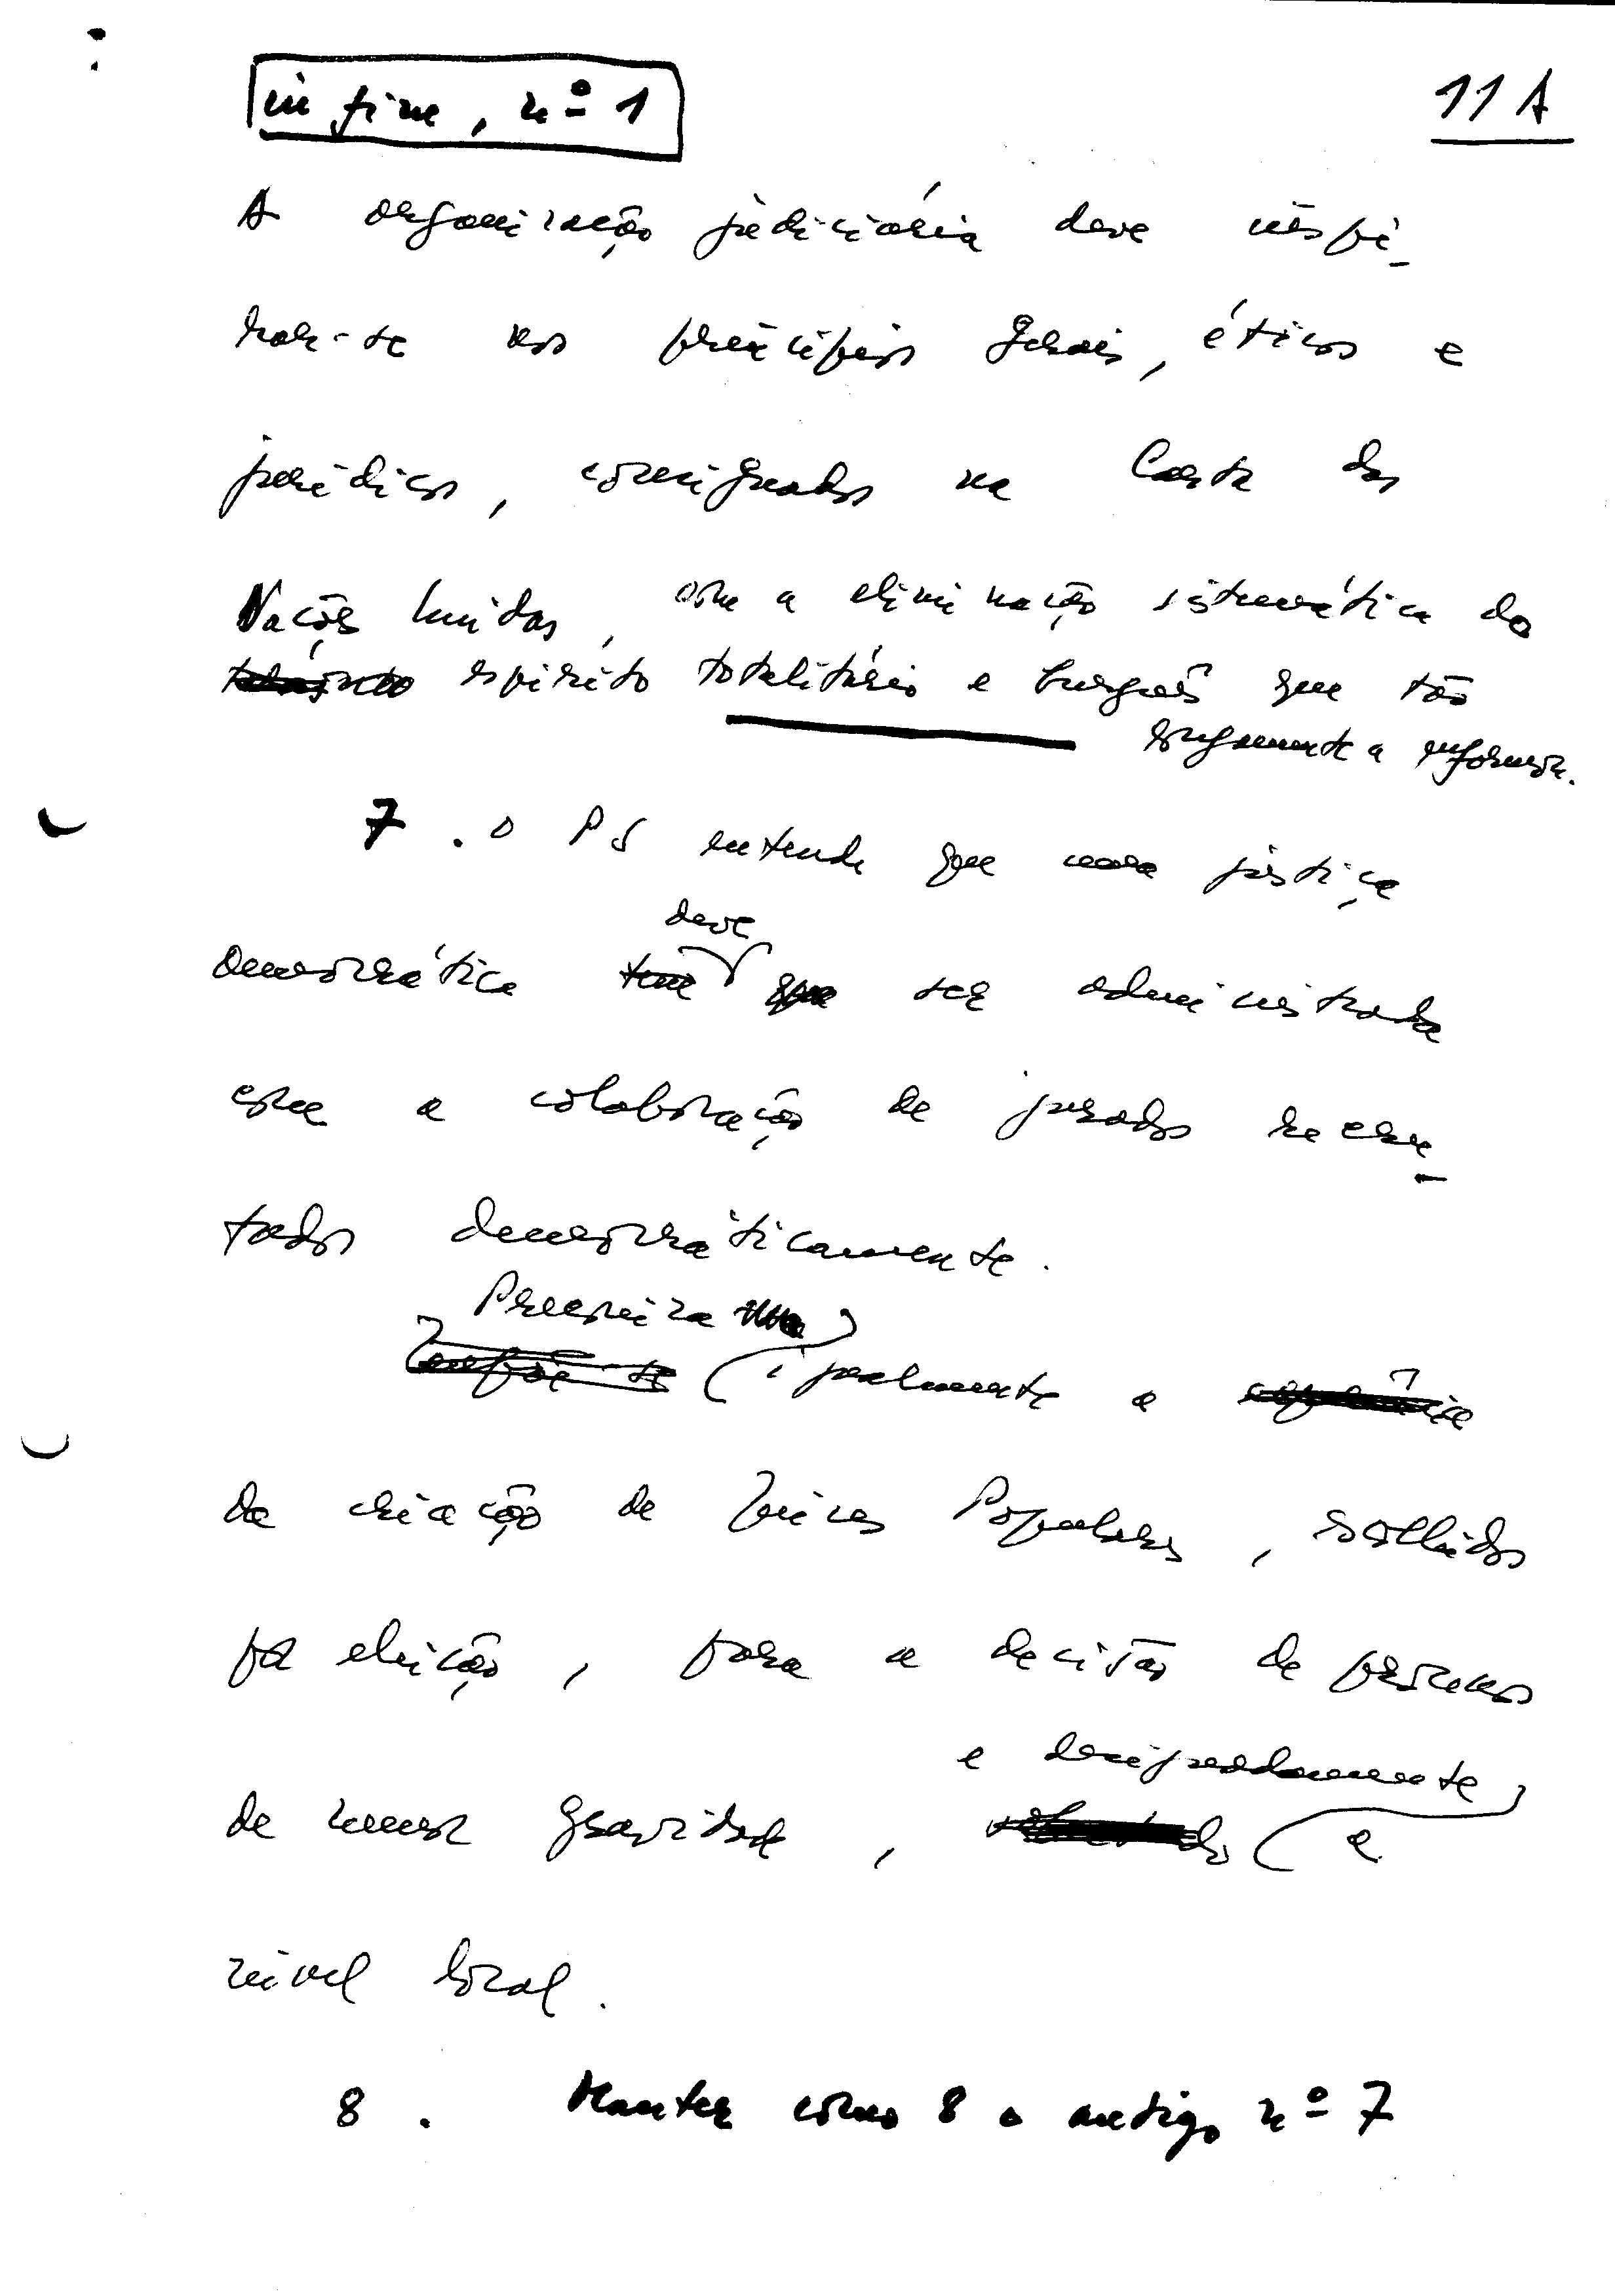 in fine, nº 1
11 A
A organização judiciária deve inspi-
rar-se nos princípios gerais, éticos e
jurídicos, consignados na Carta das
Nações Unidas, com a eliminação sistemática do
espírito totalitário e burguês que tão
longamente a enformou.
7. O PS entende que uma justiça
deve
democrática tem que ser administrada
com a colaboração de jurados recru-
tados democràticamente.
Preconiza
Impõe-se igualmente a
da criação de Juízes Populares, escolhidos
por eleição, para a decisão de processos
e designadamente
de menor gravidade, a
nível local.
8. Manter como 8 o antigo nº 7